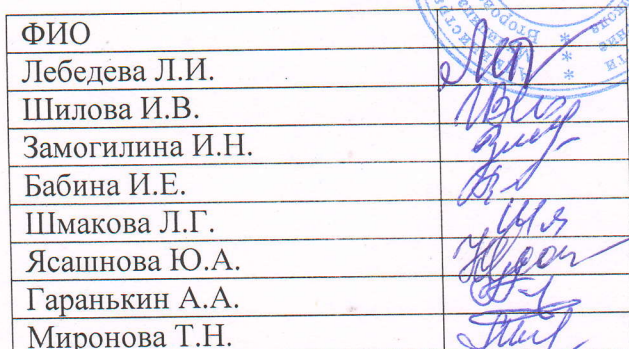 ФИО
Лебедева Л.И.
Шилова И.В.
Замогилина И.Н.
Бабина И.Е.
Шмакова Л.Г.
Ясашнова Ю.А.
Гаранькин А.А.
Миронова Т.Н.